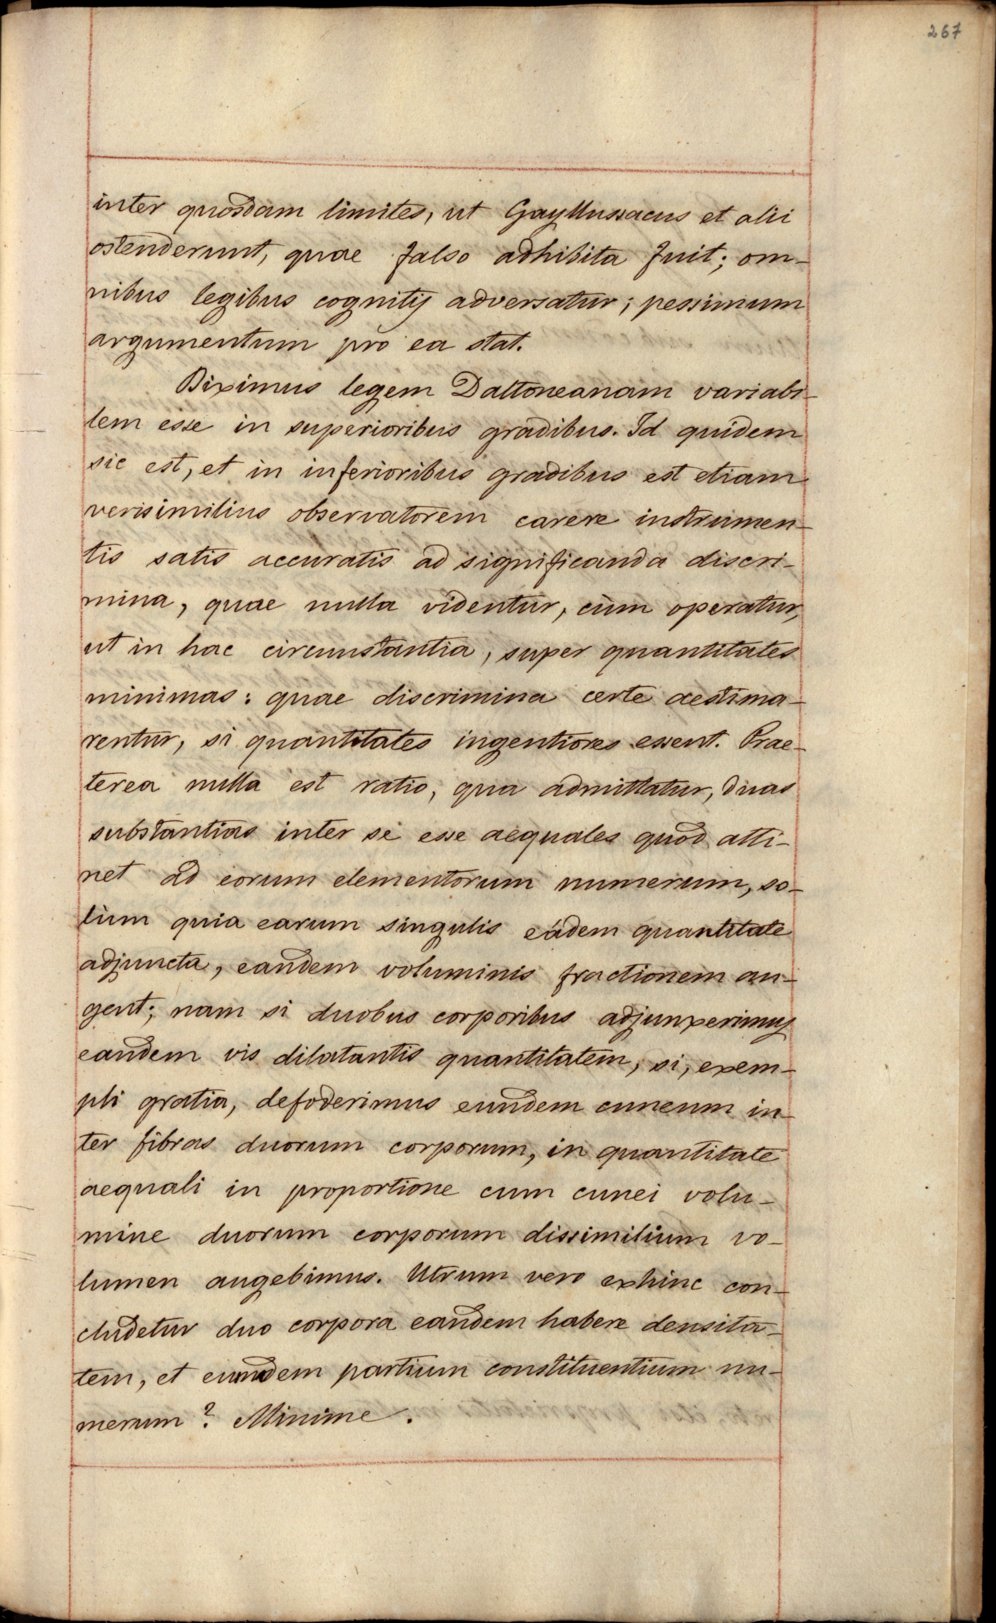 267
inter quosdam limites, ut Gayllussacus et alii
ostenderunt, quae falso adhibita fuit; om-
nibus legibus cognitis adversatur; pessimum
argumentum pro ea stat.
Diximus legem Daltoneanam variabi-
lem esse in superioribus gradibus. Id quidem
sic est, et in inferioribus gradibus est etiam
verisimilius observatorem carere instrumen-
tis satis accuratis ad significanda discri-
mina, quae nulla videntur, cùm operatur,
ut in hac circumstantia, super quantitates
minimas: quae discrimina certe aestima-
rentur, si quantitates ingentiores essent. Prae-
terea nulla est ratio, qua admittatur, duas
substantias inter se esse aequales quod atti-
net ad eorum elementorum numerum, so-
lùm quia earum singulis eâdem quantitate
adjuncta, eandem voluminis fractionem au-
gent; nam si duobus corporibus adjunxerimus
eandem vis dilatantis quantitatem, si, exem-
pli gratia, defoderimus eundem cuneum in-
ter fibras duorum corporum, in quantitate
aequali in proportione cum cunei volu-
mine duorum corporum dissimilium vo-
lumen augebimus. Utrum vero exhinc con-
cludetur duo corpora eandem habere densita-
tem, et eundem partium constituentium nu-
merum? Minime.